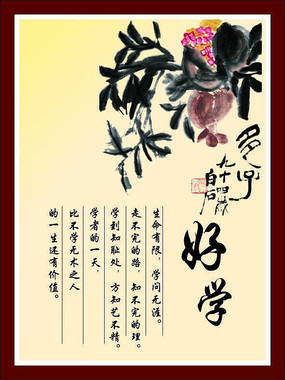 多子
九十四岁
白石
好学
生命有限，学问无涯。
走不完的路，知不完的理。
学到知耻处，方知艺不精。
学者的一天，
比不学无术之人
的一生还有价值。